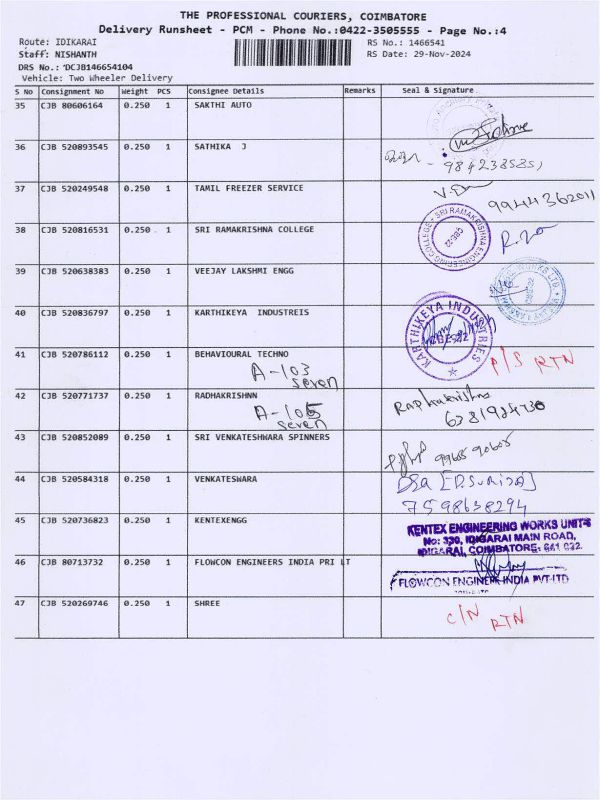 THE PROFESSIONAL COURIERS, COIMBATORE
Delivery Runsheet - PCM - Phone No.:0422-3505555 - Page No.:4
Route: IDIKARAI RS No.: 1466541
Staff: NISHANTH RS Date: 29-Nov-2024
DRS No.: 'DCJB146654104
Vehicle: Two Wheeler Delivery
S No Consignment No Weight PCS Consignee Details Remarks Seal & Signature
35 CJB 80606164 0.250 1 SAKTHI AUTO
36 CJB 520893545 0.250 1 SATHIKA J
37 CJB 520249548 0.250 1 TAMIL FREEZER SERVICE
9944362011
38 CJB 520816531 0.250 1 SRI RAMAKRISHNA COLLEGE
SRI RAMAKRISHNA ENGINEERING COLLEGE
CBE-22
39 CJB 520638383 0.250 1 VEEJAY LAKSHMI ENGG
40 CJB 520836797 0.250 1 KARTHIKEYA INDUSTREIS
KARTHIKEYA INDUSTRIES
41 CJB 520786112 0.250 1 BEHAVIOURAL TECHNO
A-103
seven
P/S RTN
42 CJB 520771737 0.250 1 RADHAKRISHNN
A-105
seven
43 CJB 520852089 0.250 1 SRI VENKATESHWARA SPINNERS
44 CJB 520584318 0.250 1 VENKATESWARA
7598638294
45 CJB 520736823 0.250 1 KENTEXENGG
KENTEX ENGINEERING WORKS UNIT-II
No: 330, IDIGARAI MAIN ROAD,
IDIGARAI, COIMBATORE- 641 022.
46 CJB 80713732 0.250 1 FLOWCON ENGINEERS INDIA PRI LT
FLOWCON ENGINEER INDIA PVT-LTD
47 CJB 520269746 0.250 1 SHREE
C/N RTN